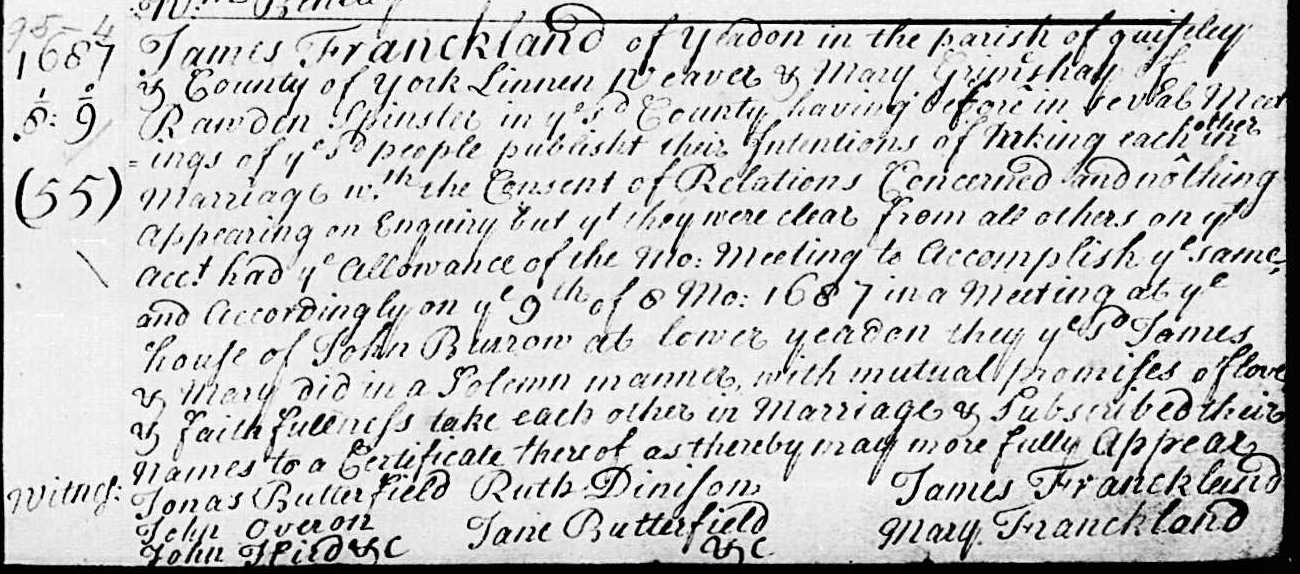 1687 James Franckland of Yeadon in the parish of guiseley
& County of York Linnen Weaver & Mary Grimshay of
8: 9 Rawden Spinster in ye sd County having before in sevral Meet
=ings of ye sd people publisht their Intentions of taking each other in
(55) Marriage wth the Consent of Relations Concerned and nothing
Appearing on Enquiry but yt they were clear from all others on yt
Acct had ye Allowance of the Mo: Meeting to Accomplish ye same,
and Accordingly on ye 9th of 8 Mo: 1687 in a Meeting at ye
house of John Burrow at lower yeadon they ye sd James
& Mary did in a Solemn manner, with mutual promises of love
& faithfullness take each other in Marriage & Subscribed their
Names to a Certificate thereof as thereby may more fully Appear
Witness: Jonas Butterfield Ruth Dinison James Franckland
John Overon Jane Butterfield Mary Franckland
John Hird &c &c